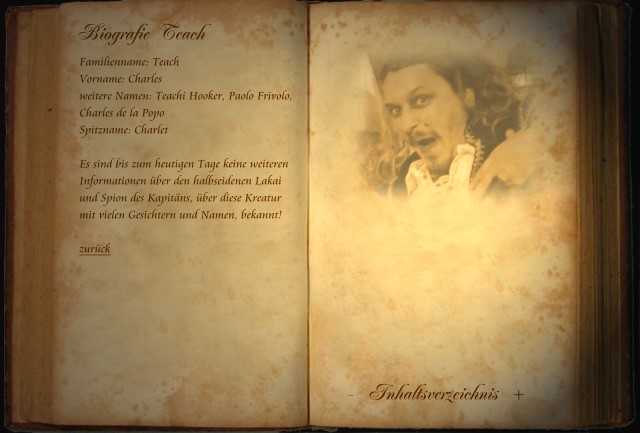 Biografie Teach
Familienname: Teach
Vorname: Charles
weitere Namen: Teachi Hooker, Paolo Frivolo,
Charles de la Popo
Spitzname: Charlet
Es sind bis zum heutigen Tage keine weiteren
Informationen über den halbseidenen Lakai
und Spion des Kapitäns, über diese Kreatur
mit vielen Gesichtern und Namen, bekannt!
zurück
- Inhaltsverzeichnis +